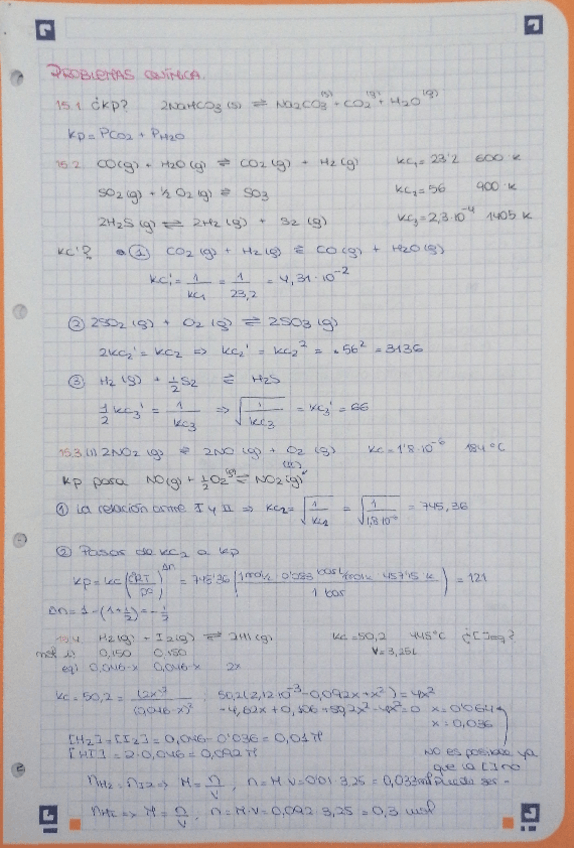 PROBLEMAS QUÍMICA.
15.1 ¿Kp? 2NaHCO3 (s) ⇌ Na2CO3 (s) + CO2 (g) + H2O (g)
Kp = PCO2 + PH2O
15.2 CO(g) + H2O (g) ⇌ CO2 (g) + H2 (g) Kc1 = 23'2 600 K
SO2 (g) + ½ O2 (g) ⇌ SO3 Kc2 = 56 900 K
2H2S (g) ⇌ 2H2 (g) + S2 (g) Kc3 = 2,3·10⁻⁴ 1405 K
Kc'? ① CO2 (g) + H2 (g) ⇌ CO(g) + H2O(g)
Kc1' = 1/Kc1 = 1/23,2 = 4,31·10⁻²
② 2SO2 (g) + O2 (g) ⇌ 2SO3 (g)
2Kc2' = Kc2 ⇒ Kc2' = Kc2² = 56² = 3136
③ H2 (g) + ½ S2 ⇌ H2S
½ Kc3' = 1/Kc3 ⇒ √(1/Kc3) = Kc3' = 66
15.3 (I) 2NO2 (g) ⇌ 2NO (g) + O2 (g) Kc = 1'8·10⁻⁶ 184 °C
Kp para NO(g) + ½ O2 (g) ⇌ NO2 (g) (II)
① La relación entre I y II ⇒ Kc2 = √(1/Kc2) = √(1/1,8·10⁻⁶) = 745,36
② Pasar de Kc2 a Kp
Kp = Kc (C°RT/P°)^Δn = 745'36 (1mol/L 0'083 bar L/mol K 457'15 K / 1 bar) = 121
Δn = 1 - (1 + ½) = -½
15.4. H2(g) + I2 (g) ⇌ 2HI (g) Kc = 50,2 445 °C ¿[ ]eq?
i) 0,150 0,150 V = 3,25L
eq) 0,046-x 0,046-x 2x
Kc = 50,2 = (2x)²/(0,046-x)² ; 50,2(2,12·10⁻³ - 0,092x + x²) = 4x²
-4,62x + 0,106 + 50,2x² - 4x² = 0 x = 0'064
x = 0,036
[H2] = [I2] = 0,046 - 0'036 = 0,01 M
[HI] = 2·0,046 = 0,092 M
No es posible ya
que la [ ] no
nH2 = nI2 ⇒ M = n/V, n = M·V = 0'01·3,25 = 0,033 mol puede ser -
nHI ⇒ M = n/V, n = M·V = 0,092·3,25 = 0,3 mol